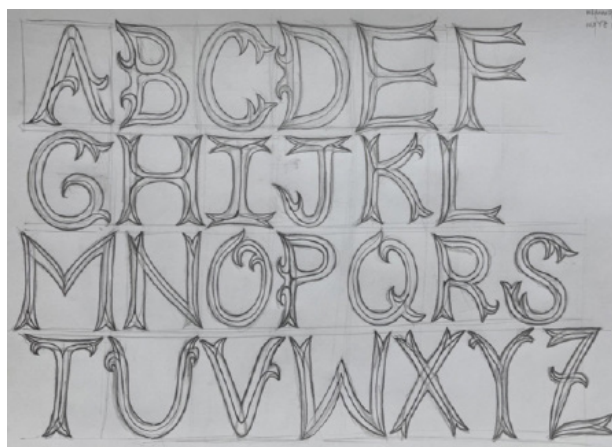 ABCDEF
GHIJKL
MNOPQRS
TUVWXYZ